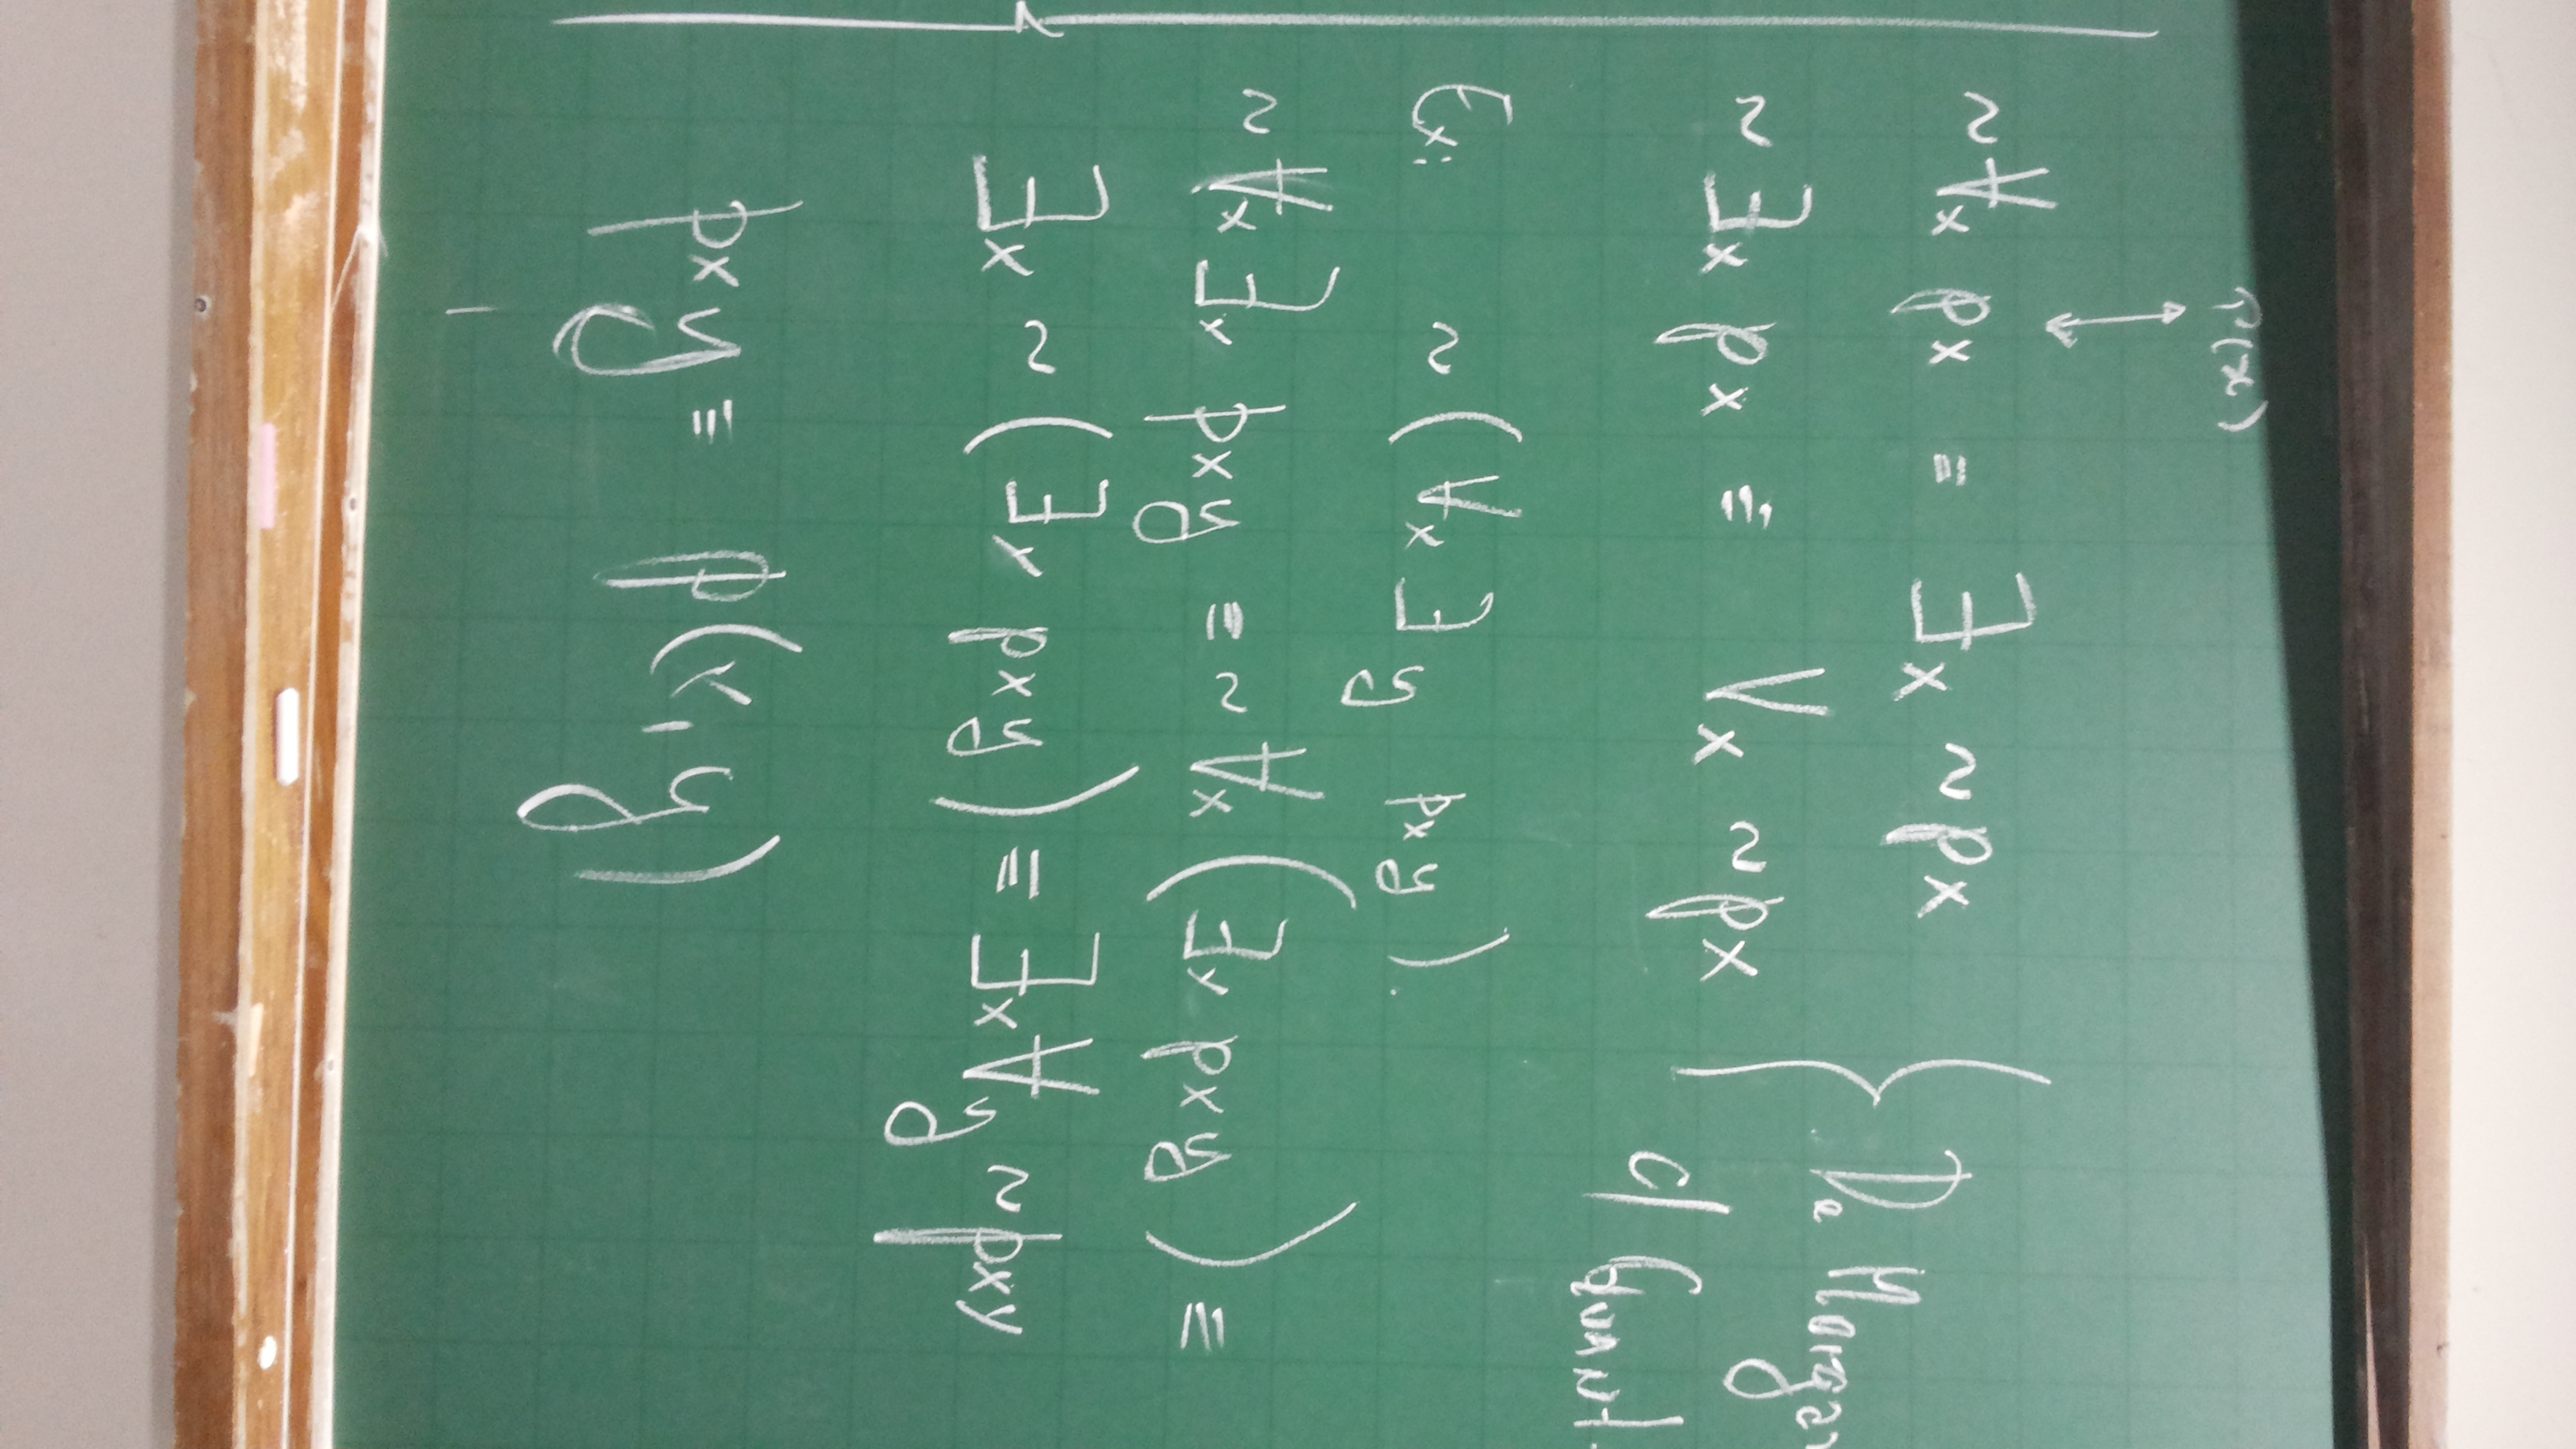 P(x)
~∀x px ≡ ∃x ~px
~∃x px ≡ ∀x ~px
De Morgan
c/ Quant.
Ex: ~(∀x ∃y pxy).
~∀x ∃y pxy ≡ ~∀x (∃y pxy) ≡
∃x ~(∃y pxy) ≡ ∃x ∀y ~pxy
pxy ≡ p(x,y)